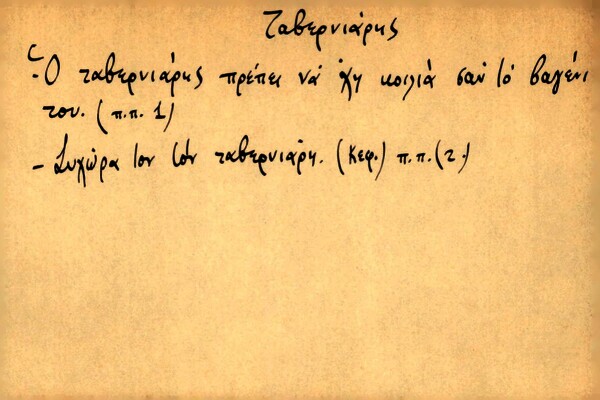 Ταβερνιάρης
- Ὁ ταβερνιάρης πρέπει νά 'χη κοιλιά σαν το βαγένι
του. (π.π. 1)
- Συχώρα τον τόν ταβερνιάρη. (Κεφ.) π.π. (τ.)